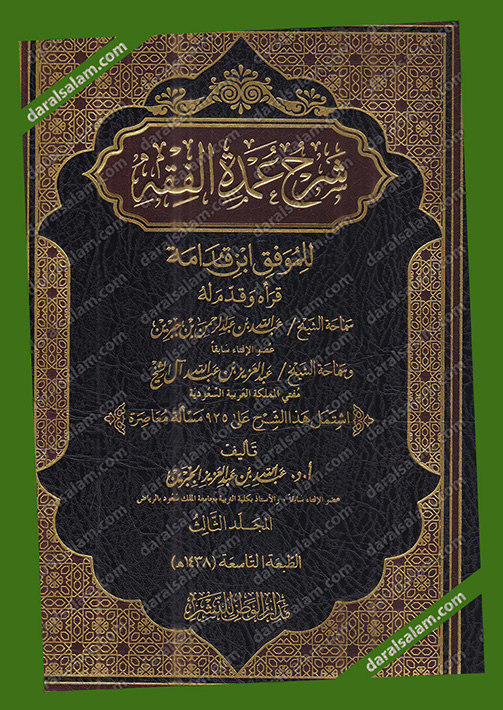 شرح عمدة الفقه
للموفق ابن قدامة
قرأه وقدم له
سماحة الشيخ / عبد الله بن عبد الرحمن بن جبرين
عضو الإفتاء سابقاً
وسماحة الشيخ / عبد العزيز بن عبد الله آل الشيخ
مفتي المملكة العربية السعودية
اشتمل هذا الشرح على ٩٢٥ مسألة معاصرة
تأليف
أ.د. عبد الله بن عبد العزيز الجبرين
عضو الإفتاء سابقاً، والأستاذ بكلية التربية بجامعة الملك سعود بالرياض
المجلد الثالث
الطبعة التاسعة (١٤٣٨هـ)
مدار الوطن للنشر
daralsalam.com
daralsalam.com